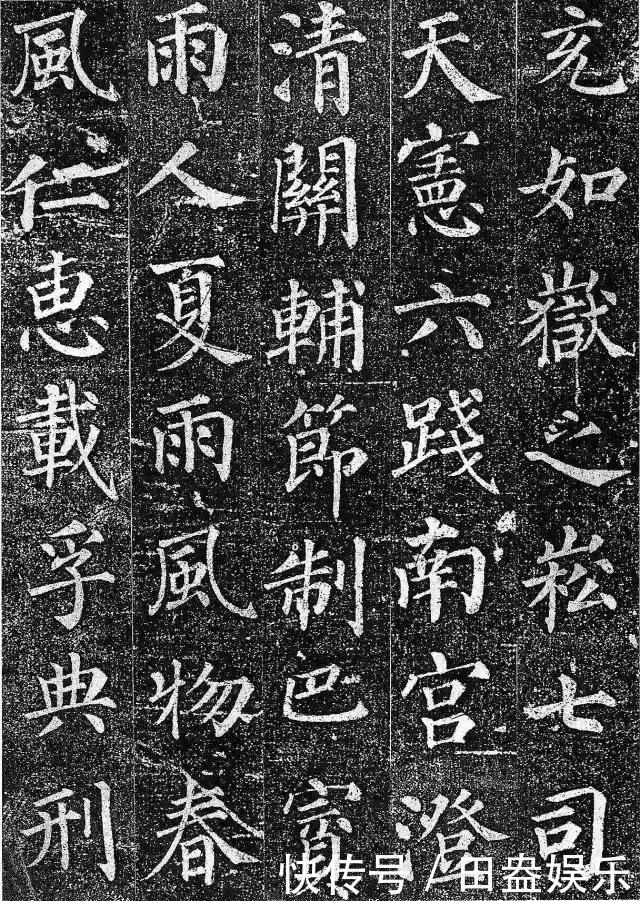 充如嶽之崧七司
天憲六踐南宫澄
清關輔節制巴
雨人夏雨風物春
風仁恵載孚典刑
快传号 / 田盎娱乐